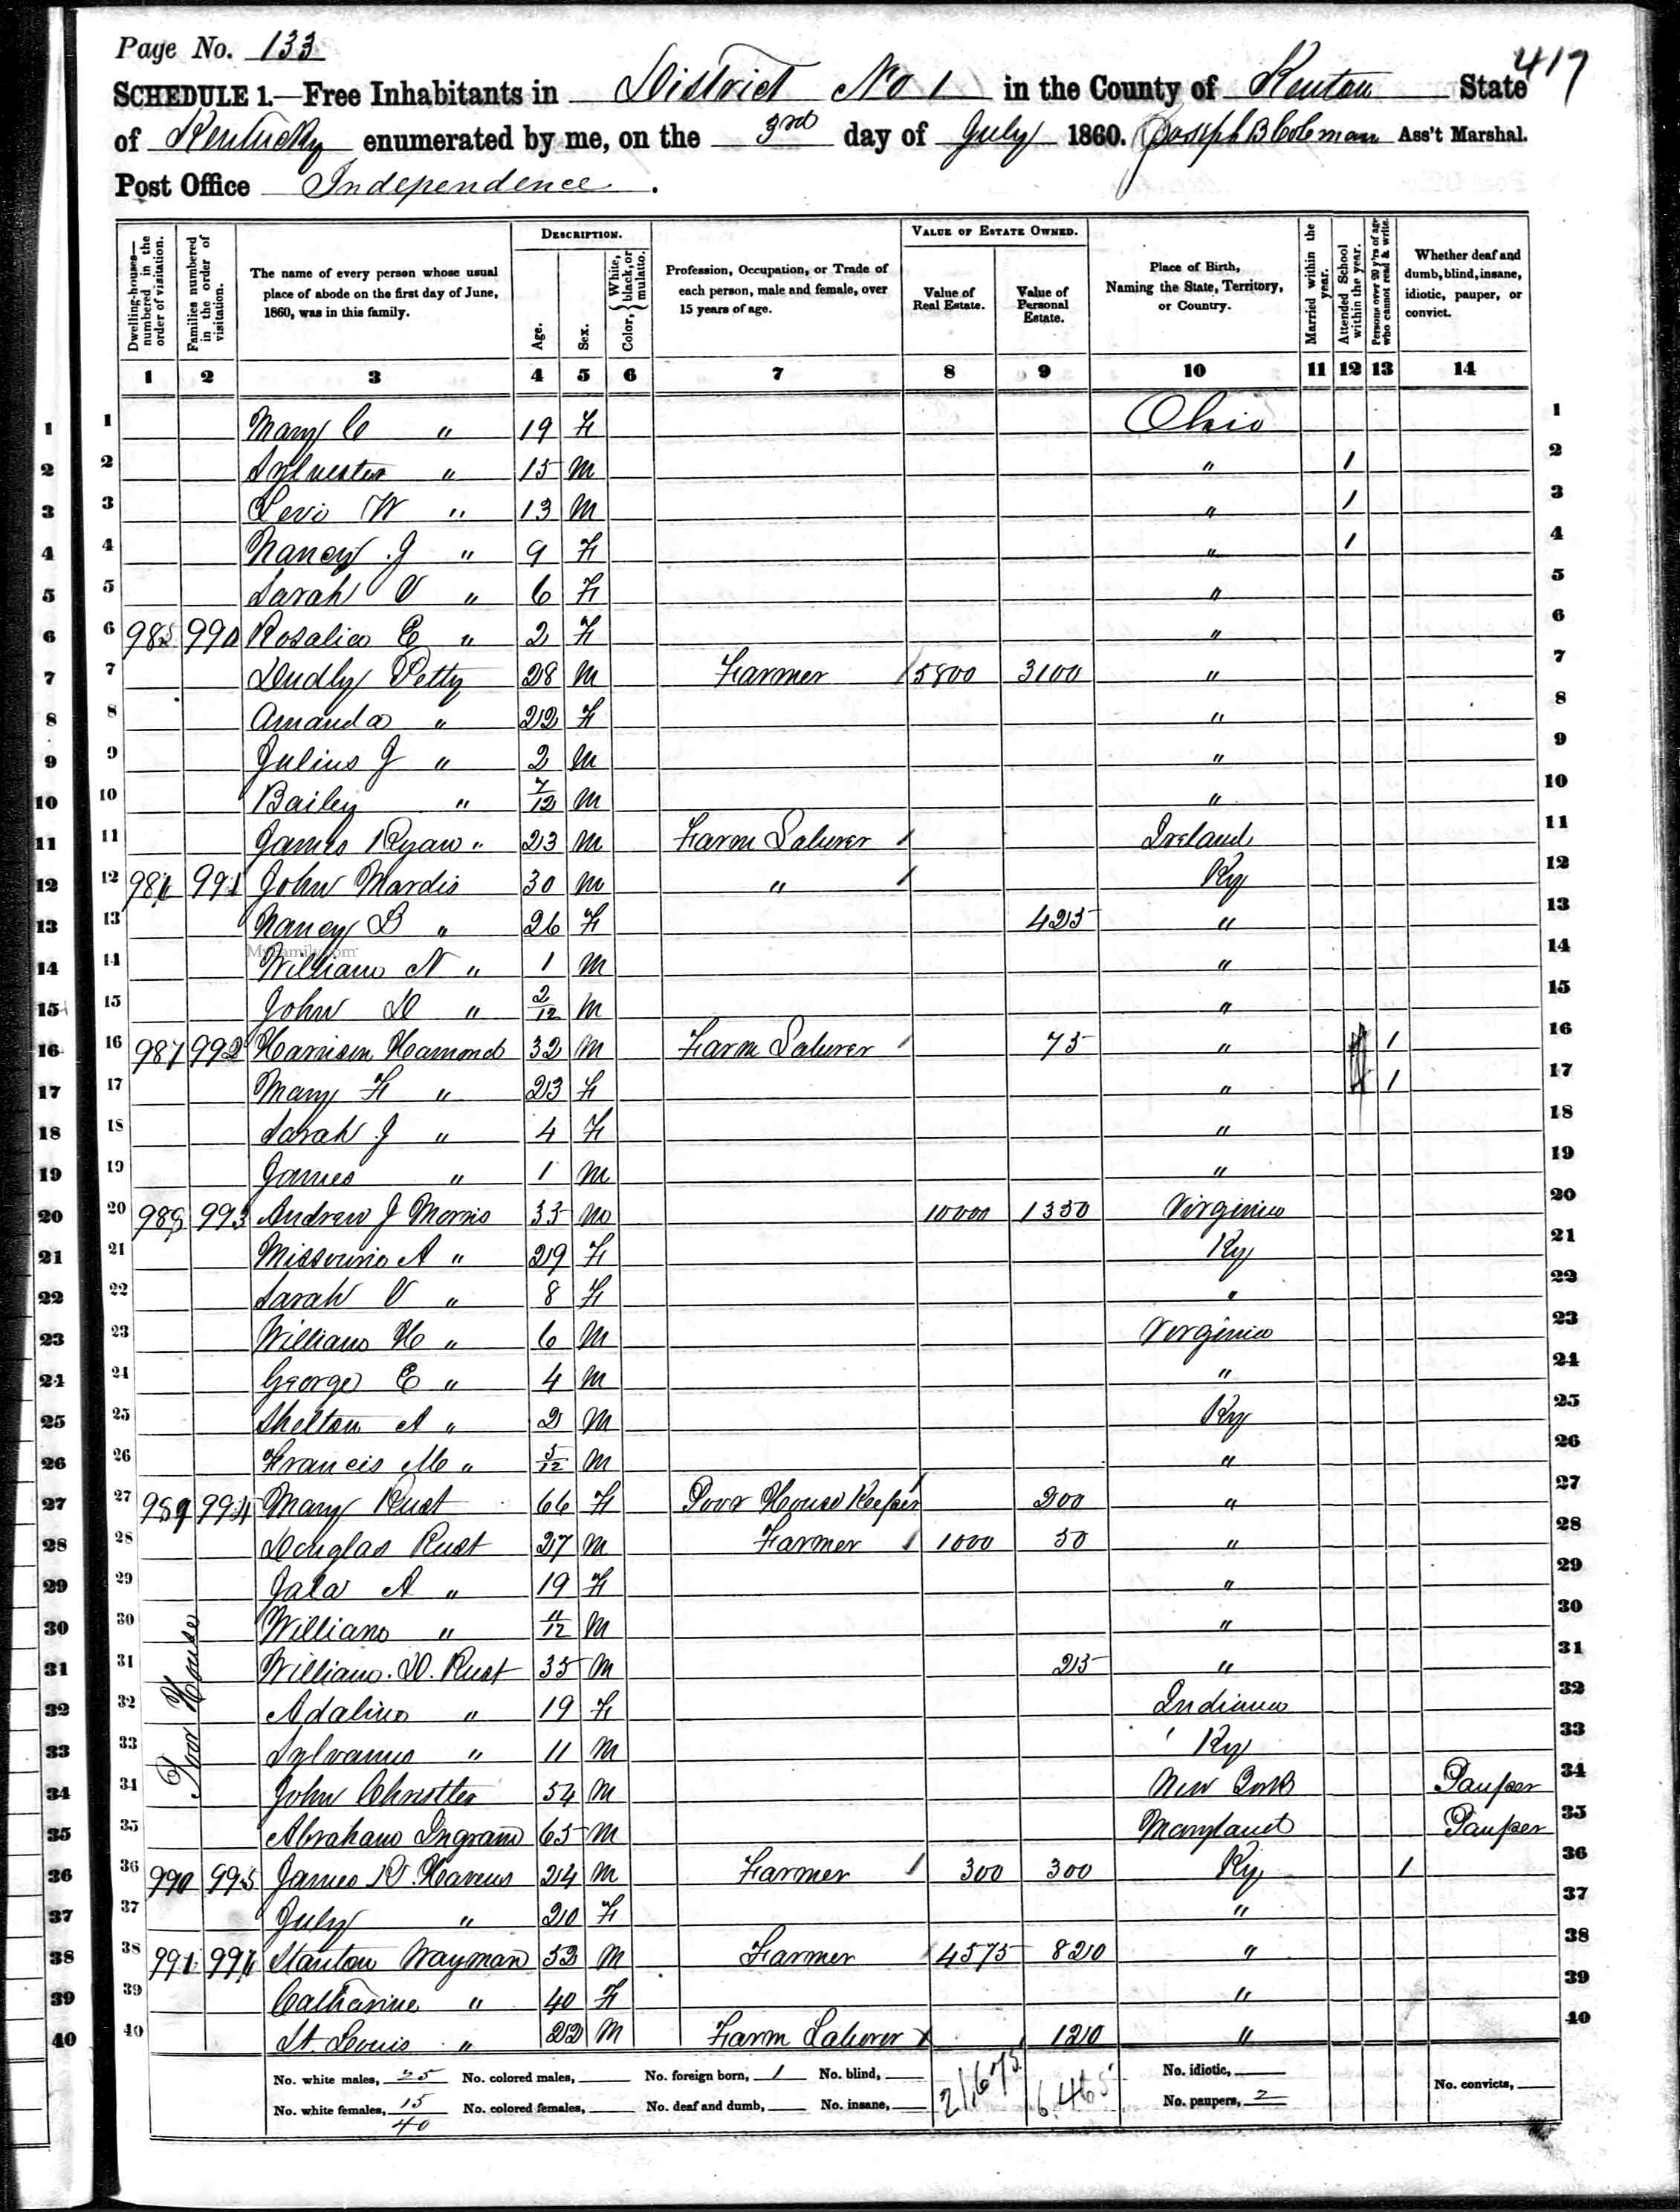 Page No. 133
417
SCHEDULE 1.—Free Inhabitants in District No 1 in the County of Kenton State
of Kentucky enumerated by me, on the 3rd day of July 1860. Joseph B Coleman Ass't Marshal.
Post Office Independence.
Dwelling-houses—numbered in the order of visitation. Families numbered in the order of visitation. The name of every person whose usual place of abode on the first day of June, 1860, was in this family. DESCRIPTION. Age. Sex. Color, { White, black, or mulatto. Profession, Occupation, or Trade of each person, male and female, over 15 years of age. VALUE OF ESTATE OWNED. Value of Real Estate. Value of Personal Estate. Place of Birth, Naming the State, Territory, or Country. Married within the year. Attended School within the year. Persons over 20 y'rs of age who cannot read & write. Whether deaf and dumb, blind, insane, idiotic, pauper, or convict.
1 2 3 4 5 6 7 8 9 10 11 12 13 14
1 1 Mary C " 19 F Ohio 1
2 2 Sylvester " 15 M " 1 2
3 3 Levi W " 13 M " 1 3
4 4 Nancy J " 9 F " 1 4
5 5 Sarah V " 6 F " 5
6 6 985 990 Rosalica E " 2 F " 6
7 7 Dudly Petty 28 M Farmer / 5800 3100 " 7
8 8 Amanda " 22 F " 8
9 9 Julius J " 2 M " 9
10 10 Bailey " 7/12 M " 10
11 11 James Ryan " 23 M Farm Laburer / Ireland 11
12 12 986 991 John Mardis 30 M " / Ky 12
13 13 Nancy B " 26 F 425 " 13
MyFamily.com
14 14 William N " 1 M " 14
15 15 John D " 2/12 M " 15
16 16 987 992 Harrison Hamond 32 M Farm Laburer / 75 " 1 16
17 17 Mary F " 23 F " 1 17
18 18 Sarah J " 4 F " 18
19 19 James " 1 M " 19
20 20 988 993 Andrew J Morris 33 M 10000 1350 Virginia 20
21 21 Missouria A " 29 F Ky 21
22 22 Sarah V " 8 F " 22
23 23 William H " 6 M Virginia 23
24 24 George E " 4 M " 24
25 25 Shelton A " 2 M Ky 25
26 26 Francis M " 5/12 M " 26
27 27 989 994 Mary Rust 66 F Poor House Keeper / 200 " 27
28 28 Douglas Rust 27 M Farmer / 1000 50 " 28
29 29 Jala A " 19 F " 29
30 30 William " 11/12 M " 30
Poor House
31 31 William D. Rust 35 M 25 " 31
32 32 Adaline " 19 F Indiana 32
33 33 Sylvanus " 11 M Ky 33
34 34 John Christter 54 M New York Pauper 34
35 35 Abraham Ingram 65 M Maryland Pauper 35
36 36 990 995 James R Havens 24 M Farmer / 300 300 Ky 1 36
37 37 July " 20 F " 37
38 38 991 996 Stanton Wayman 53 M Farmer / 4575 820 " 38
39 39 Catharine " 40 F " 39
40 40 St. Louis " 22 M Farm Laburer 120 " 40
No. white males, 25 No. colored males, No. foreign born, 1 No. blind, 21,675 6,465 No. idiotic,
No. white females, 15 No. colored females, No. deaf and dumb, No. insane, No. paupers, 2 No. convicts,
40